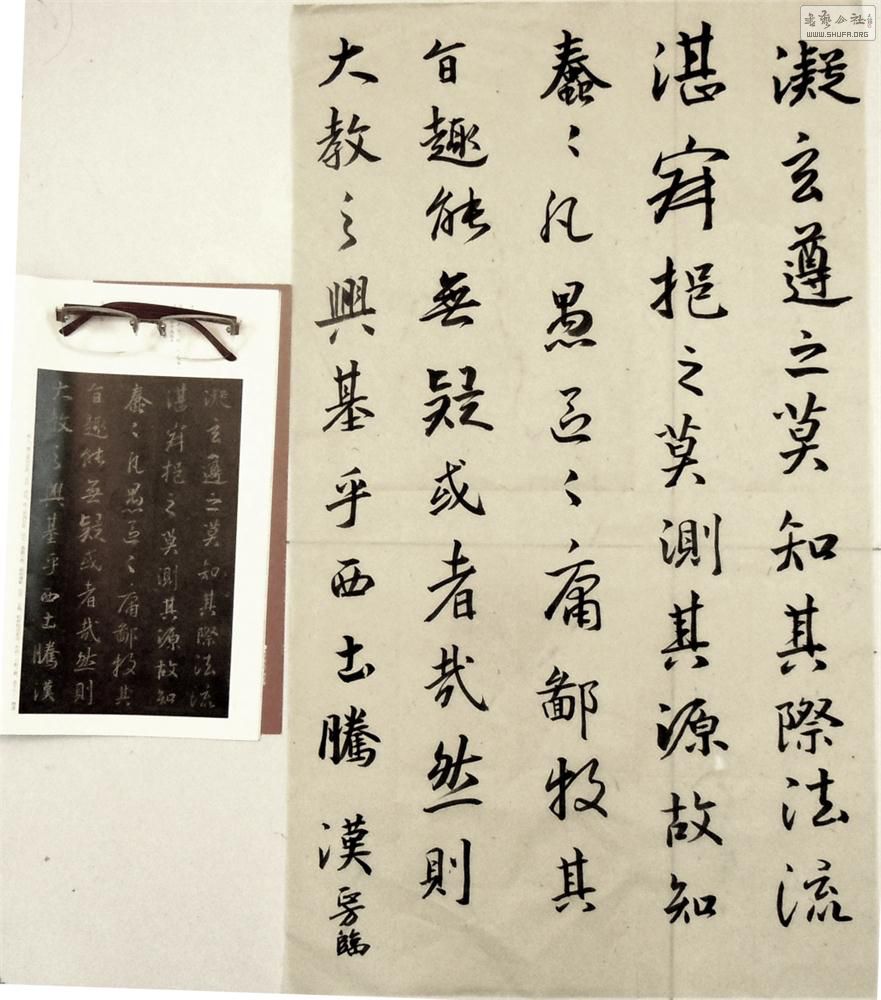 凝玄遵之莫知其際法流
湛寂挹之莫測其源故知
蠢〻凡愚區〻庸鄙投其
旨趣能無疑或者哉然則
大教之興基乎西土騰漢
臨
凝玄遵之莫知其際法流
湛寂挹之莫測其源故知
蠢〻凡愚區〻庸鄙投其
旨趣能無疑或者哉然則
大教之興基乎西土騰漢
書藝公社
WWW.SHUFA.ORG